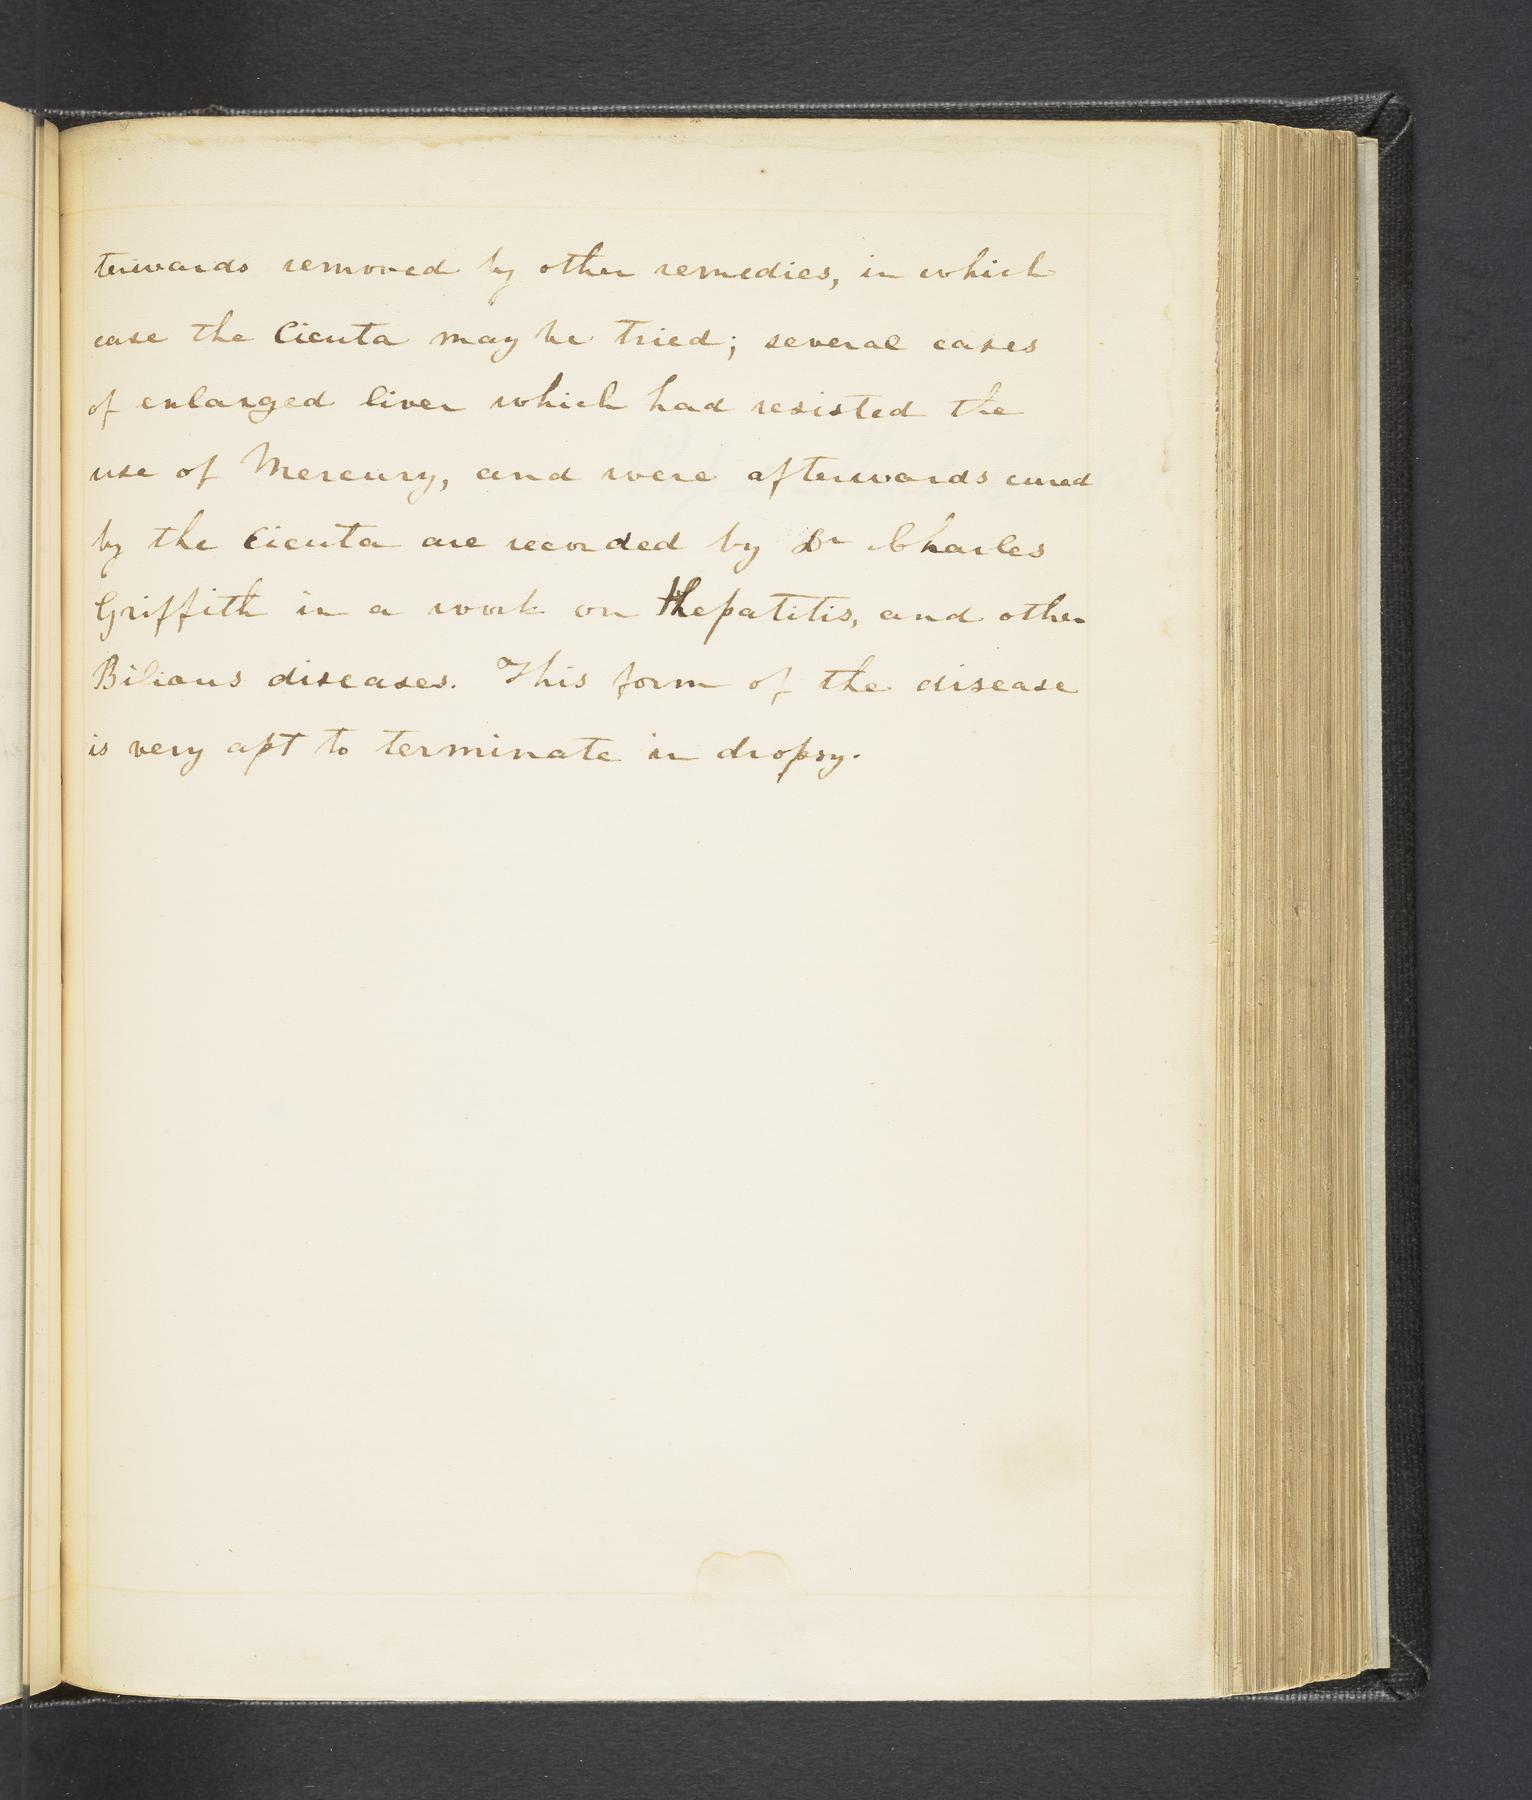 terwards removed by other remedies, in which
case the Cicuta may be tried; several cases
of enlarged liver which had resisted the
use of Mercury, and were afterwards cured
by the Cicuta are recorded by Dr Charles
Griffith in a work on Hepatitis, and other
Bilious diseases. This form of the disease
is very apt to terminate in dropsy.